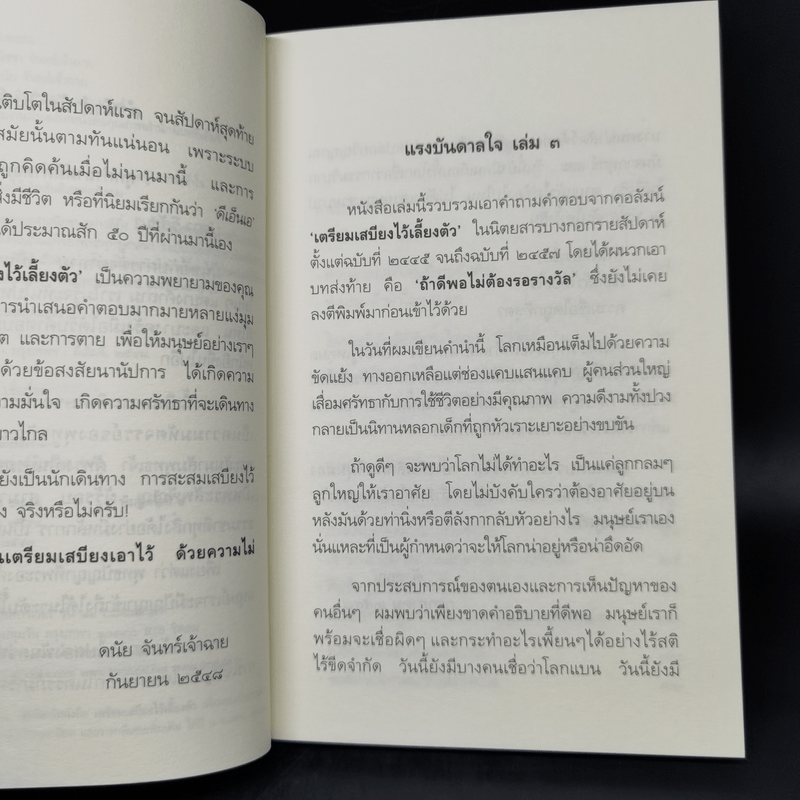 เติบโตในสัปดาห์แรก จนสัปดาห์สุดท้าย
สมัยนั้นตามทันแน่นอน เพราะระบบ
ถูกคิดค้นเมื่อไม่นานมานี้ และการ
สิ่งมีชีวิต หรือที่นิยมเรียกกันว่า ‘ดีเอ็นเอ’
ได้ประมาณสัก ๕๐ ปีที่ผ่านมานี้เอง
ไว้เลี้ยงตัว’ เป็นความพยายามของคุณ
การนำเสนอคำตอบมากมายหลายแง่มุม
และการตาย เพื่อให้มนุษย์อย่างเราๆ
ด้วยข้อสงสัยนานัปการ ได้เกิดความ
ามมั่นใจ เกิดความศรัทธาที่จะเดินทาง
าวไกล
ยังเป็นนักเดินทาง การสะสมเสบียงไว้
จริงหรือไม่ครับ!
เตรียมเสบียงเอาไว้ ด้วยความไม่
ดนัย จันทร์เจ้าฉาย
กันยายน ๒๕๔๘
แรงบันดาลใจ เล่ม ๓
หนังสือเล่มนี้รวบรวมเอาคำถามคำตอบจากคอลัมน์
‘เตรียมเสบียงไว้เลี้ยงตัว’ ในนิตยสารบางกอกรายสัปดาห์
ตั้งแต่ฉบับที่ ๒๔๔๕ จนถึงฉบับที่ ๒๔๕๗ โดยได้ผนวกเอา
บทส่งท้าย คือ ‘ถ้าดีพอไม่ต้องรอรางวัล’ ซึ่งยังไม่เคย
ลงตีพิมพ์มาก่อนเข้าไว้ด้วย
ในวันที่ผมเขียนคำนำนี้ โลกเหมือนเต็มไปด้วยความ
ขัดแย้ง ทางออกเหลือแต่ช่องแคบแสนแคบ ผู้คนส่วนใหญ่
เสื่อมศรัทธากับการใช้ชีวิตอย่างมีคุณภาพ ความดีงามทั้งปวง
กลายเป็นนิทานหลอกเด็กที่ถูกหัวเราะเยาะอย่างขบขัน
ถ้าดูดีๆ จะพบว่าโลกไม่ได้ทำอะไร เป็นแค่ลูกกลมๆ
ลูกใหญ่ให้เราอาศัย โดยไม่บังคับใครว่าต้องอาศัยอยู่บน
หลังมันด้วยท่านิ่งหรือตีลังกากลับหัวอย่างไร มนุษย์เราเอง
นั่นแหละที่เป็นผู้กำหนดว่าจะให้โลกน่าอยู่หรือน่าอึดอัด
จากประสบการณ์ของตนเองและการเห็นปัญหาของ
คนอื่นๆ ผมพบว่าเพียงขาดคำอธิบายที่ดีพอ มนุษย์เราก็
พร้อมจะเชื่อผิดๆ และกระทำอะไรเพี้ยนๆได้อย่างไร้สติ
ไร้ขีดจำกัด วันนี้ยังมีบางคนเชื่อว่าโลกแบน วันนี้ยังมี